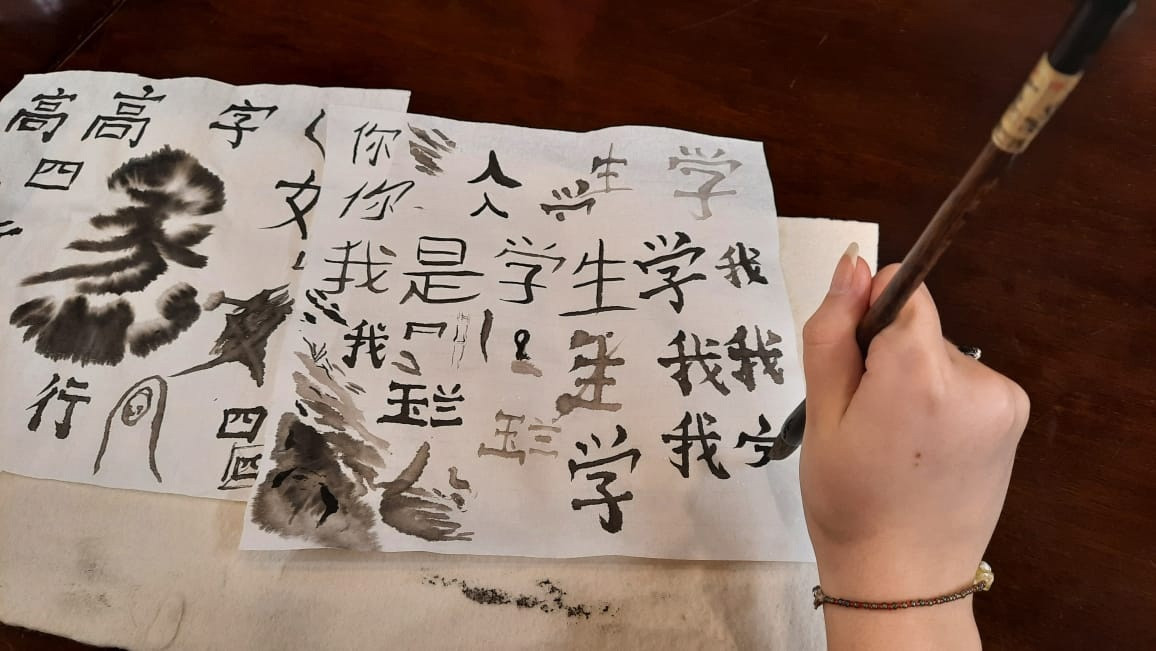 高 高 字
四
行
四
四
你 人 生 学
你 人 学
我 是 学 生 学 我
我 生 我 我
玉兰 玉兰
学 我